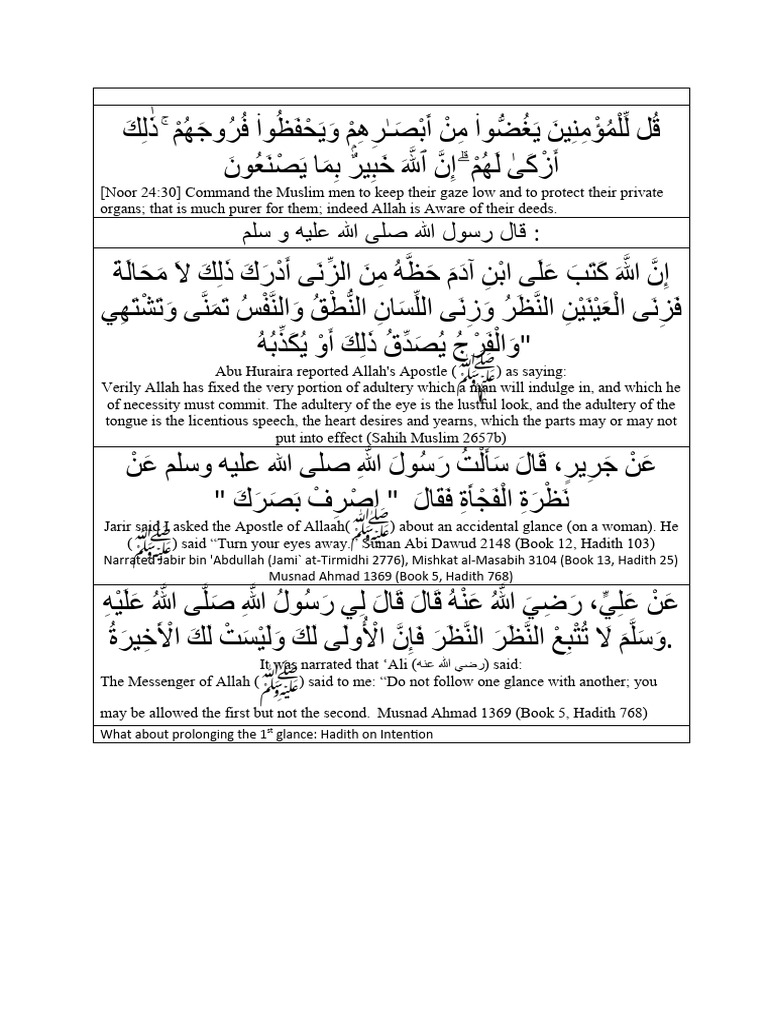 قُل لِّلْمُؤْمِنِينَ يَغُضُّوا۟ مِنْ أَبْصَـٰرِهِمْ وَيَحْفَظُوا۟ فُرُوجَهُمْ ۚ ذَٰلِكَ
أَزْكَىٰ لَهُمْ ۗ إِنَّ ٱللَّهَ خَبِيرٌۢ بِمَا يَصْنَعُونَ
[Noor 24:30] Command the Muslim men to keep their gaze low and to protect their private
organs; that is much purer for them; indeed Allah is Aware of their deeds.
قال رسول الله صلى الله عليه و سلم :
إِنَّ اللَّهَ كَتَبَ عَلَى ابْنِ آدَمَ حَظَّهُ مِنَ الزِّنَى أَدْرَكَ ذَلِكَ لاَ مَحَالَةَ
فَزِنَى الْعَيْنَيْنِ النَّظَرُ وَزِنَى اللِّسَانِ النُّطْقُ وَالنَّفْسُ تَمَنَّى وَتَشْتَهِي
وَالْفَرْجُ يُصَدِّقُ ذَلِكَ أَوْ يُكَذِّبُهُ"
Abu Huraira reported Allah's Apostle (ﷺ) as saying:
Verily Allah has fixed the very portion of adultery which a man will indulge in, and which he
of necessity must commit. The adultery of the eye is the lustful look, and the adultery of the
tongue is the licentious speech, the heart desires and yearns, which the parts may or may not
put into effect (Sahih Muslim 2657b)
عَنْ جَرِيرٍ، قَالَ سَأَلْتُ رَسُولَ اللَّهِ صلى الله عليه وسلم عَنْ
نَظْرَةِ الْفَجْأَةِ فَقَالَ ‏ "‏ اصْرِفْ بَصَرَكَ ‏"
Jarir said I asked the Apostle of Allaah(ﷺ) about an accidental glance (on a woman). He
(ﷺ) said “Turn your eyes away.” Sunan Abi Dawud 2148 (Book 12, Hadith 103)
Narrated Jabir bin 'Abdullah (Jami` at-Tirmidhi 2776), Mishkat al-Masabih 3104 (Book 13, Hadith 25)
Musnad Ahmad 1369 (Book 5, Hadith 768)
عَنْ عَلِيٍّ، رَضِيَ اللَّهُ عَنْهُ قَالَ قَالَ لِي رَسُولُ اللَّهِ صَلَّى اللَّهُ عَلَيْهِ
وَسَلَّمَ لَا تُتْبِعْ النَّظَرَ النَّظَرَ فَإِنَّ الْأُولَى لَكَ وَلَيْسَتْ لَكَ الْأَخِيرَةُ.
It was narrated that ‘Ali (رضي الله عنه) said:
The Messenger of Allah (ﷺ) said to me: “Do not follow one glance with another; you
may be allowed the first but not the second. Musnad Ahmad 1369 (Book 5, Hadith 768)
What about prolonging the 1st glance: Hadith on Intention